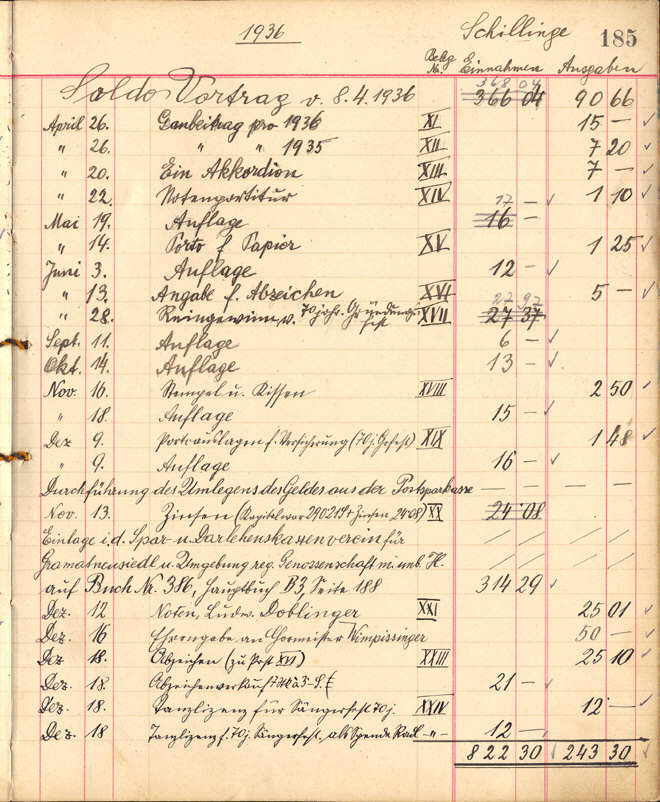 1936 Schillinge 185
Beleg Nr. Einnahmen Ausgaben
368 04
Saldo Vortrag v. 8.4.1936 366 04 90 66
April 26. Gaubeitrag pro 1936 XI 15 —
" 26. " " 1935 XII 7 20
" 20. Ein Akkordion XIII 7 —
" 22. Notenpartitur XIV 1 10
17 —
Mai 19. Auflage 16 —
" 14. Porto f. Papier XV 1 25
Juni 3. Auflage 12 —
" 13. Angabe f. Abzeichen XVI 5 —
27 97
" 28. Reingewinn v. 70 jähr. Gründungsfest XVII 27 37
Sept. 11. Auflage 6 —
Okt. 14. Auflage 13 —
Nov. 16. Stempel u. Kissen XVIII 2 50
" 18. Auflage 15 —
Dez 9. Portoauslagen f. Versicherung (70 j. Gefest) XIX 1 48
" 9. Auflage 16 —
Durchführung des Umlegens des Geldes aus der Postsparkasse — — — —
Nov. 13. Zinsen (Kapital war 290 21 + Zinsen 24 08) XX 24 08
Einlage i. d. Spar- u. Darlehenskassenverein für
Gramatneusiedl u. Umgebung reg. Genossenschaft m. unb. H.
auf Buch Nr. 386, Hauptbuch B3, Seite 188 314 29
Dez. 12 Noten, Ludw. Doblinger XXI 25 01
Dez. 16 Ehrengabe an Chormeister Wimpissinger 50 —
Dez 18. Abzeichen (zu Post XVI) XXIII 25 10
Dez. 18. Abzeichenverkauf 7 Stk à 3-S. 21 —
Dez. 18. Tanzlizenz für Sängerfest 70 j. XXIV 12 —
Dez. 18 Tanzlizenz f. 70 j. Sängerfest. als Spende -"- 12 —
822 30 243 30